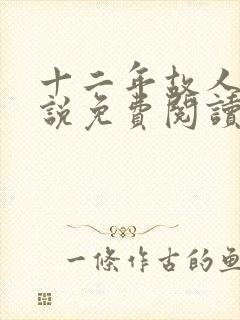 十二年故人
說免費閱讀
一條作古的魚